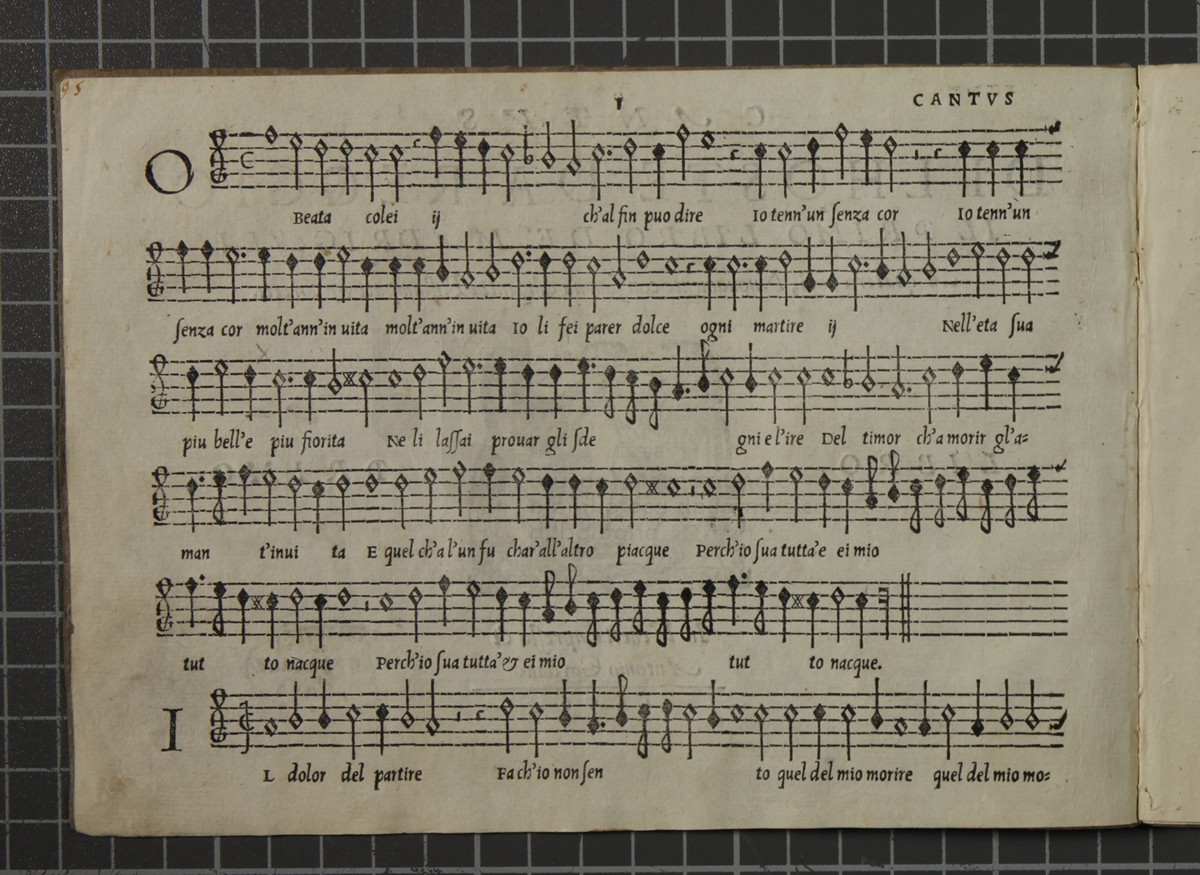 95
1
CANTVS
O
Beata colei ij ch'al fin puo dire Io tenn'un ſenza cor Io tenn'un
ſenza cor molt'ann'in uita molt'ann'in uita Io li fei parer dolce ogni martire ij Nell'eta ſua
piu bell'e piu fiorita Ne li laſſai prouar gli ſde gni e l'ire Del timor ch'a morir gl'a=
man t'inui ta E quel ch'a l'un fu char'all'altro piacque Perch'io ſua tutta'e ei mio
tut to nacque Perch'io ſua tutta'& ei mio tut to nacque.
I
L dolor del partire Fa ch'io non ſen to quel del mio morire quel del mio mo=